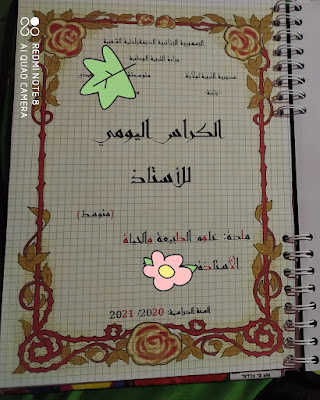 الجمهورية الجزائرية الديمقراطية الشعبية
وزارة التربية الوطنية
مديرية التربية لولاية
متوسطة
الكراس اليومي
للأستاذ
(متوسط)
مادة: علوم الطبيعة والحياة
الأستاذة:
السنة الدراسية: 2020/ 2021
REDMI NOTE 8
AI QUAD CAMERA